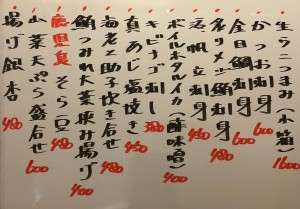 生うにまみ(小箱) 1600
かつお刺 600
金目鯛刺身
炙りメ鯖刺身 480
活帆立刺身 450
ボイルホタルイカ(酢味噌) 400
キビナゴ刺し 380
真あじ塩焼き 450
海老と助子炊き合せ 480
鯵つみれ大葉挟み揚げ 400
鹿児島そら豆 480
山菜天ぷら盛合せ 600
揚げ銀杏 480